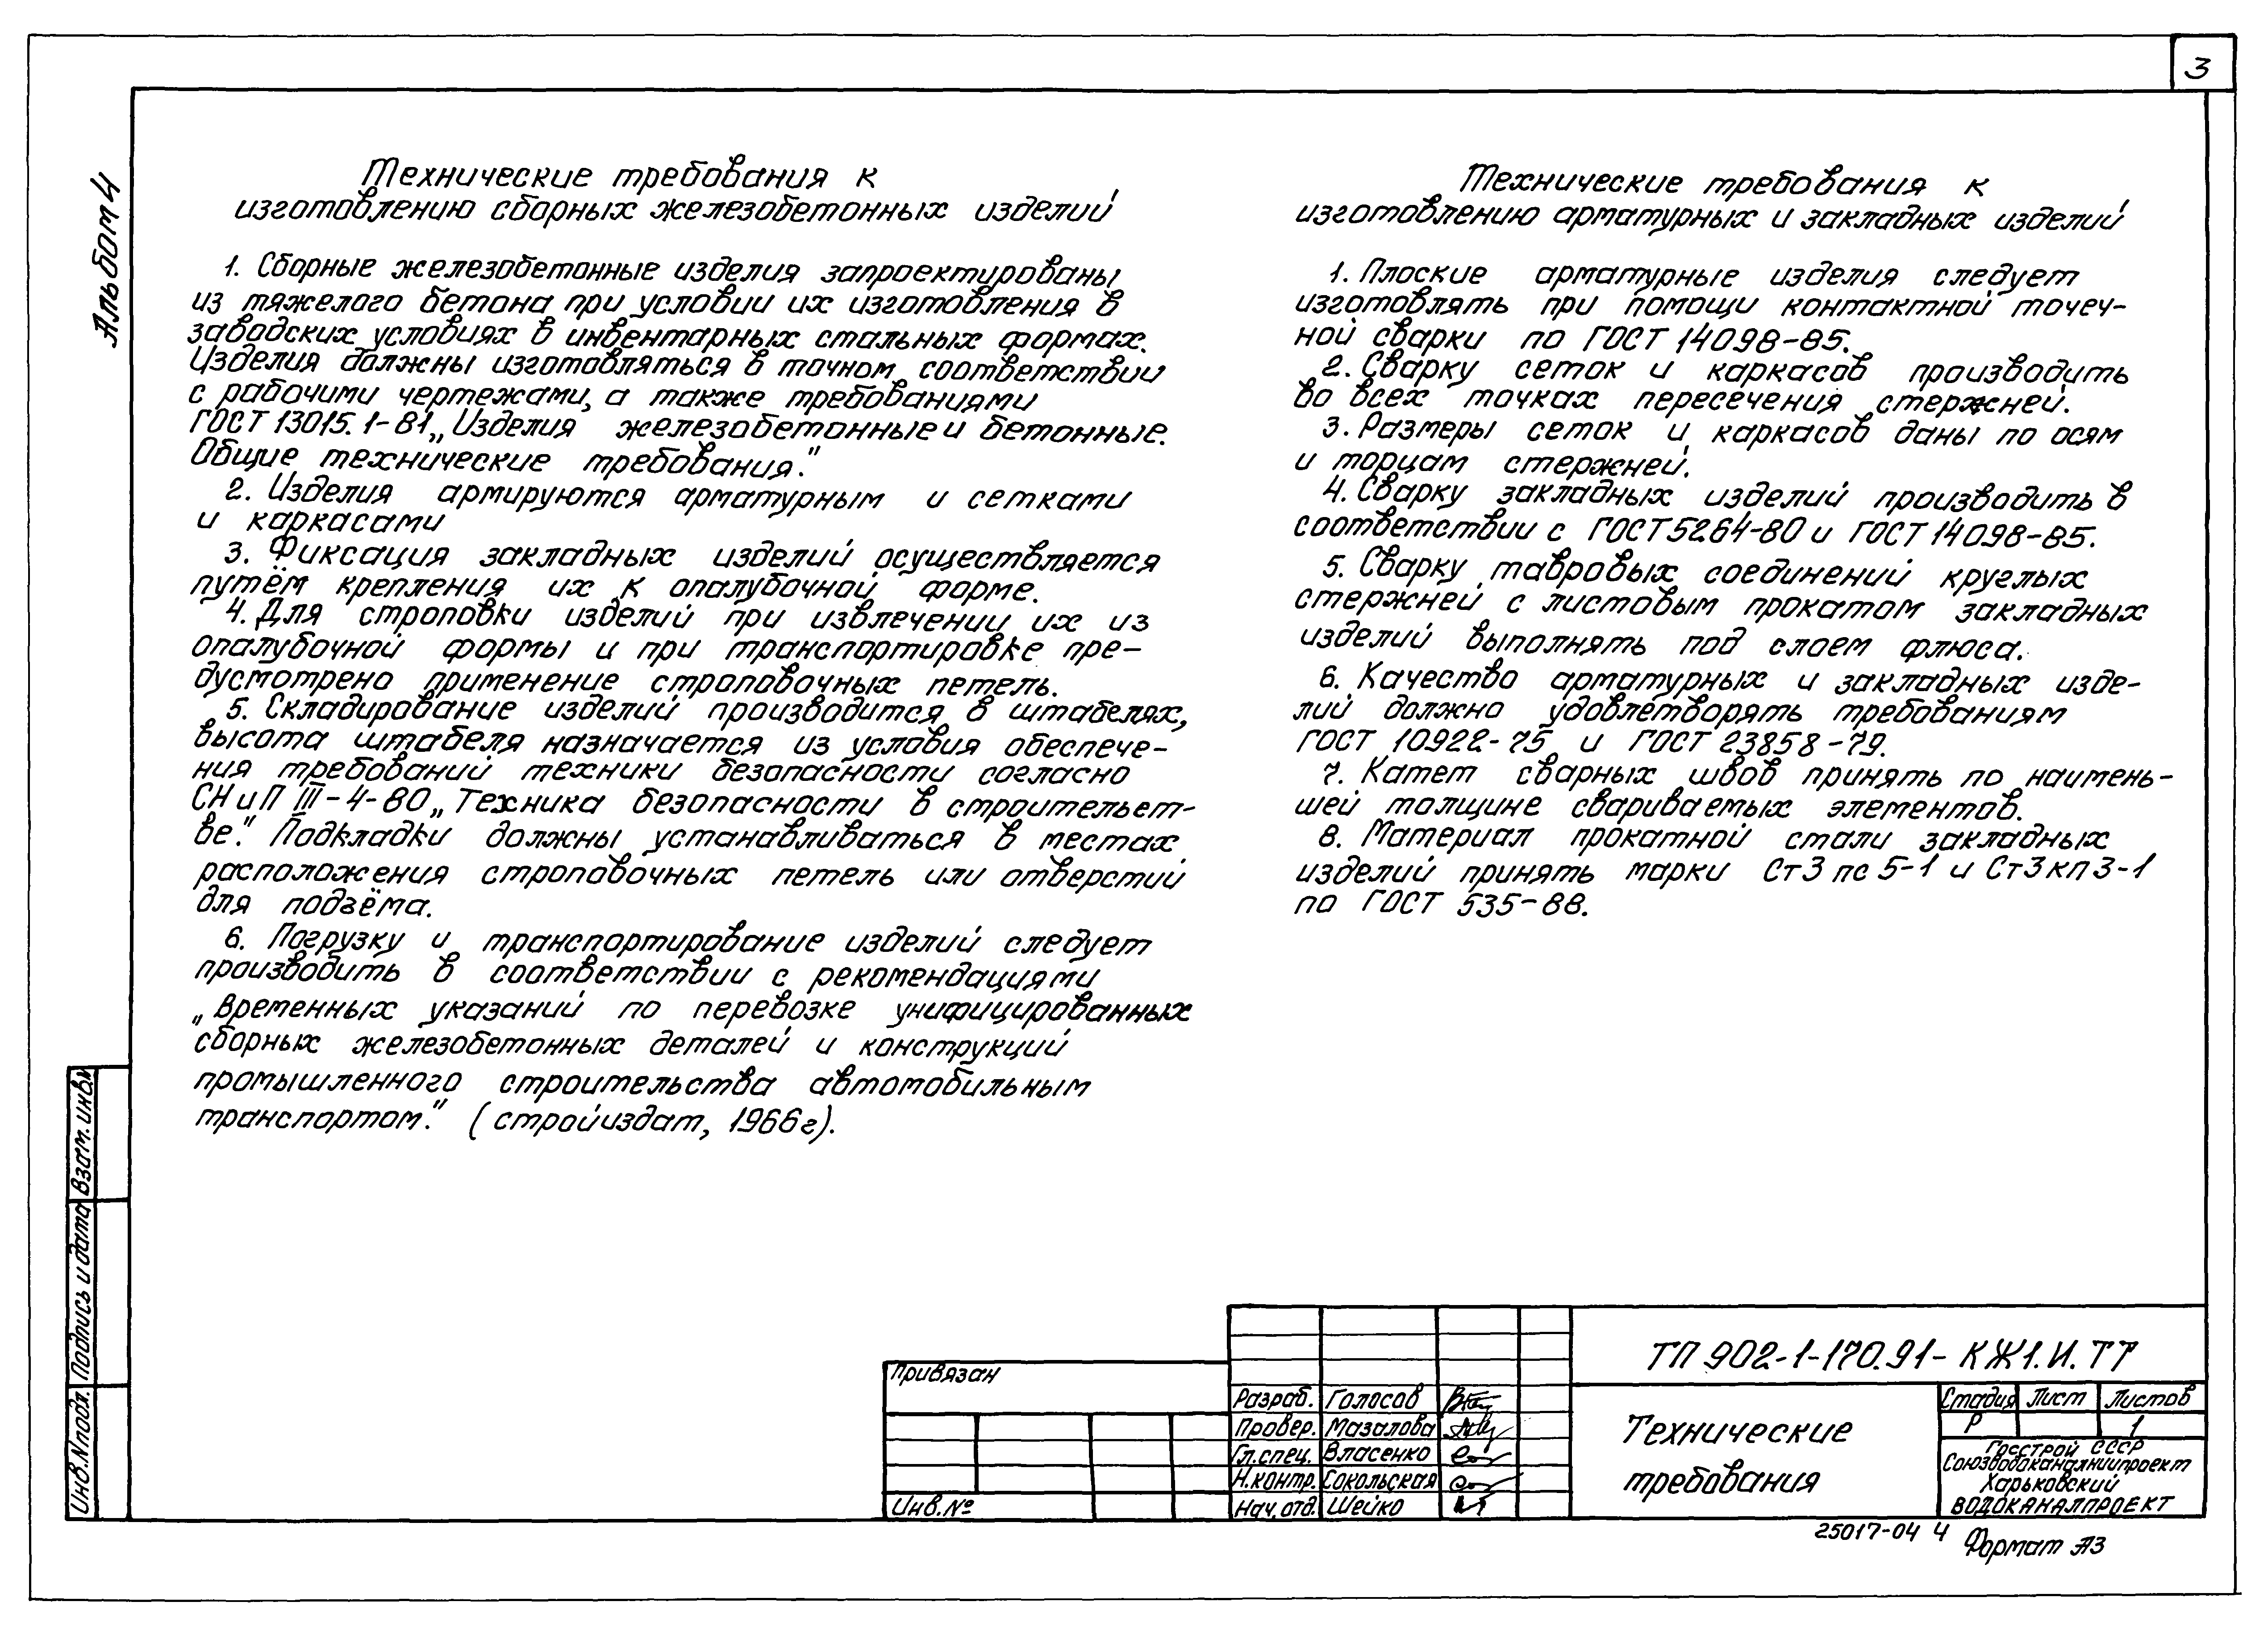 3
Альбом 4
Технические требования к
изготовлению сборных железобетонных изделий
1. Сборные железобетонные изделия запроектированы
из тяжелого бетона при условии их изготовления в
заводских условиях в инвентарных стальных формах.
Изделия должны изготовляться в точном соответствии
с рабочими чертежами, а также требованиями
ГОСТ 13015.1-81 „Изделия железобетонные и бетонные.
Общие технические требования."
2. Изделия армируются арматурным и сетками
и каркасами
3. Фиксация закладных изделий осуществляется
путём крепления их к опалубочной форме.
4. Для строповки изделий при извлечении их из
опалубочной формы и при транспортировке пре-
дусмотрено применение строповочных петель.
5. Складирование изделий производится в штабелях,
высота штабеля назначается из условия обеспече-
ния требований техники безопасности согласно
СНиП III-4-80 „Техника безопасности в строительст-
ве". Подкладки должны устанавливаться в местах
расположения строповочных петель или отверстий
для подъёма.
6. Погрузку и транспортирование изделий следует
производить в соответствии с рекомендациями
„Временных указаний по перевозке унифицированных
сборных железобетонных деталей и конструкций
промышленного строительства автомобильным
транспортом." (стройиздат, 1966г).
Технические требования к
изготовлению арматурных и закладных изделий
1. Плоские арматурные изделия следует
изготовлять при помощи контактной точеч-
ной сварки по ГОСТ 14098-85.
2. Сварку сеток и каркасов производить
во всех точках пересечения стержней.
3. Размеры сеток и каркасов даны по осям
и торцам стержней.
4. Сварку закладных изделий производить в
соответствии с ГОСТ 5264-80 и ГОСТ 14098-85.
5. Сварку тавровых соединений круглых
стержней с листовым прокатом закладных
изделий выполнять под слоем флюса.
6. Качество арматурных и закладных изде-
лий должно удовлетворять требованиям
ГОСТ 10922-75 и ГОСТ 23858-79.
7. Катет сварных швов принять по наимень-
шей толщине свариваемых элементов.
8. Материал прокатной стали закладных
изделий принять марки Ст3 пс 5-1 и Ст3 кп 3-1
по ГОСТ 535-88.
Взам. инв.№
Подпись и дата
Инв.№подл.
Привязан
Инв.№
Разраб. Голосов
Провер. Мазалова
Гл.спец. Власенко
Н.контр. Сокольская
Нач.отд. Шейко
ТП 902-1-170.91- КЖ1.И.ТТ
Технические
требования
Стадия Лист Листов
Р 1
Госстрой СССР
Союзводоканалниипроект
Харьковский
ВОДОКАНАЛПРОЕКТ
25017-04 4
Формат А3